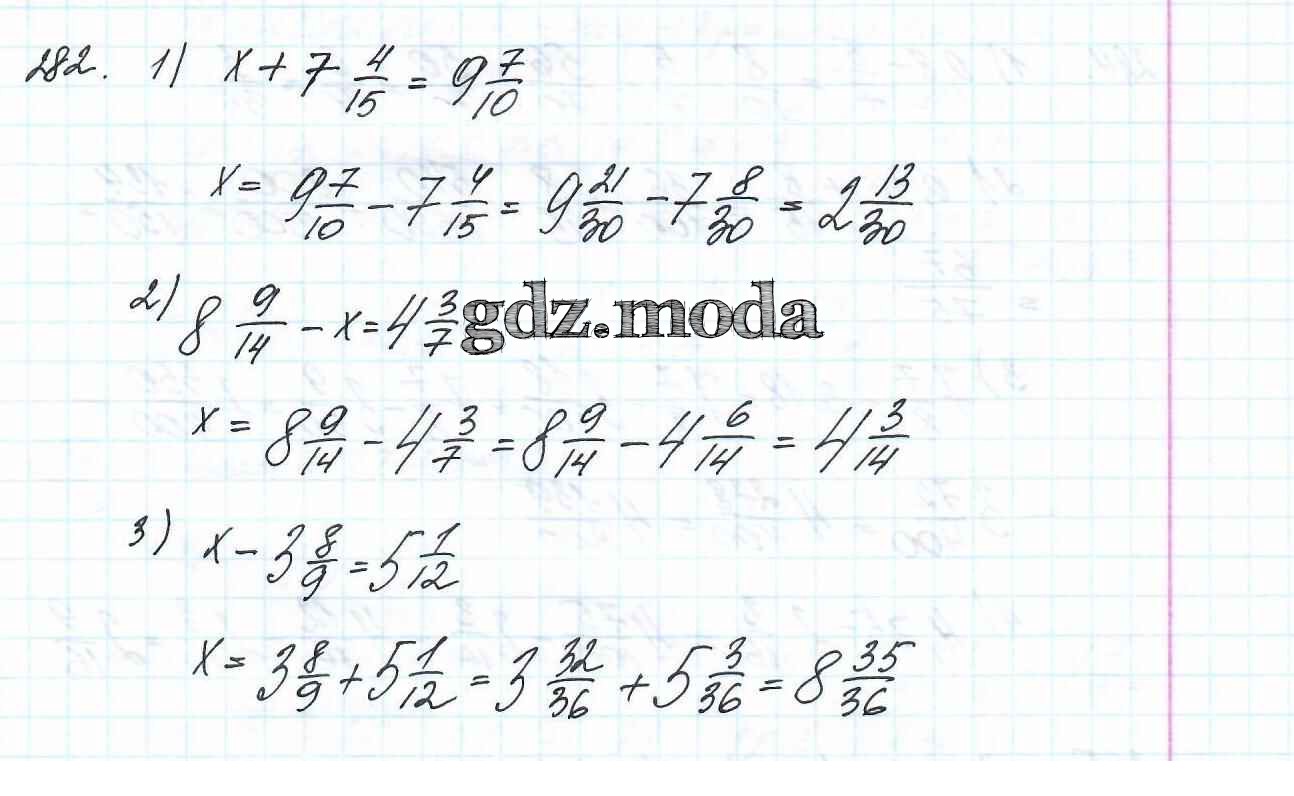 282. 1) x + 7 4/15 = 9 7/10
x = 9 7/10 - 7 4/15 = 9 21/30 - 7 8/30 = 2 13/30
2) 8 9/14 - x = 4 3/7 gdz.moda
x = 8 9/14 - 4 3/7 = 8 9/14 - 4 6/14 = 4 3/14
3) x - 3 8/9 = 5 1/12
x = 3 8/9 + 5 1/12 = 3 32/36 + 5 3/36 = 8 35/36